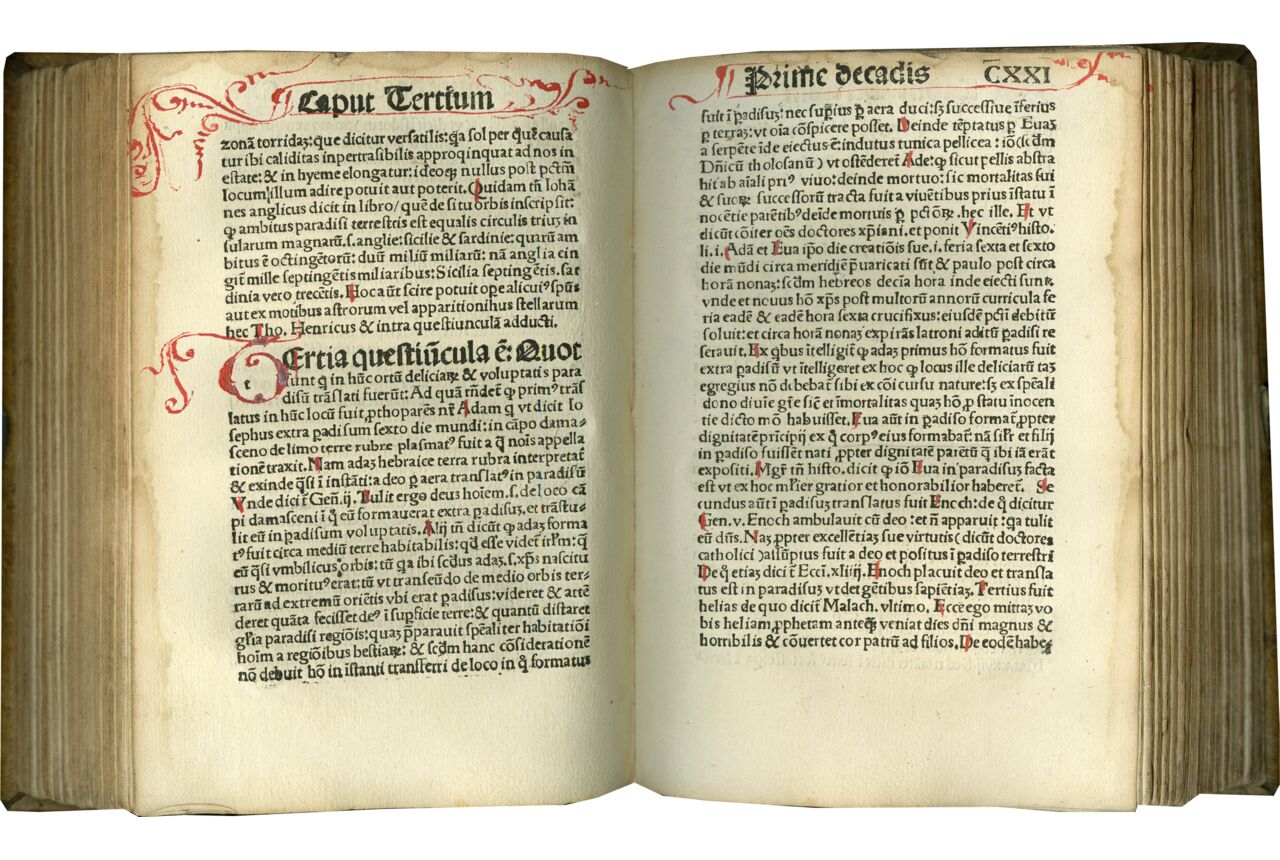 Caput Tertium
zonā torridaʒ: que dicitur versatilis: q̄a sol per quē causa
tur ibi caliditas inpertrasibilis approqinquat ad nos in
estate: & in hyeme elongatur: ideoqꝫ nullus post pctm̄
locum illum adire potuit aut poterit. Quidam tn̄ Johā
nes anglicus dicit in libro/ quē de situ orbis inscripsit:
ꝙ ambitus paradisi terrestris est equalis circulis triuʒ in
sularum magnarū. s. anglie: sicilie & sardinie: quarū am
bitus ē octingētorū: duū miliū miliarū: nā anglia cin
git mille septingētis miliaribus: Sicilia septingētis. sar
dinia vero trecētis. Hoc aūt scire potuit ope alicuiꝰ spūs
aut ex motibus astrorum vel apparitionibus stellarum
hec Tho. Henricus & intra questiunculā adducti.
TErtia questiūcula ē: Quot
sunt q̄ in hūc ortū deliciaꝝ & voluptatis para
disū trāslati fuerūt: Ad quā rn̄det ꝙ primꝰ trās
latus in hūc locū fuit ꝓthoparēs nr̄ Adam q̄ vt dicit Jo
sephus extra p̄adisum sexto die mundi: in cāpo dama⸗
sceno de limo terre rubre plasmatꝰ fuit a q̄ nois appella
tionē traxit. Nam adaʒ hebraice terra rubra interpretat̄
& exinde q̄si ī instāti: a deo p̄ aera translatꝰ in paradisū
Vnde dicit̄ Gen̄. ij. Tulit ergo deus hoīem. s. de loco cā
pi damasceni ī q̄ eū formauerat extra p̄adisuʒ. et trāstu⸗
lit eū in p̄adisum voluptatis. Alij tn̄ dicūt ꝙ adaʒ forma
tꝰ fuit circa mediū terre habitabilis: qd̄ esse videt̄ irl̄m: q̄
eū q̄si vmbilicus orbis: tū q̄a ibi scd̄us adaʒ. s. xp̄s nascitu
rus & moriturꝰ erat: tū vt transeūdo de medio orbis ter⸗
rarū ad extremū oriētis vbi erat p̄adisus: videret & attē
deret quāta fecisset deꝰ ī supficie terre: & quantū distaret
gl̄ia paradisi regiōis: quaʒ p̄parauit sp̄ealiter habitatiōi
hoīm a regiōibus bestiaꝝ: & scd̄m hanc cōsiderationē
nō debuit hō in īstanti transferri de loco in q̄ formatus
Prime decadis CXXI
fuit ī p̄adisuʒ: nec supius p̄ aera duci: sʒ successiue īferius
p̄ terraʒ: vt oīa cōspicere posset. Deinde tēptatus p̄ Euaʒ
a serpēte īde eiectus ē: indutus tunica pellicea: iō (scd̄m
Dn̄icū tholosanū) vt ostēderet̄ Ade: ꝙ sicut pellis abstra
hit̄ ab aīali priꝰ viuo: deinde mortuo: sic mortalitas sui
& suoꝝ successorū tracta fuit a viuētibus prius īstatu ī
nocētie parētibꝰ deīde mortuis p̄ pctōꝝ. hec ille. Et vt
dicūt cōiter oēs doctores xp̄iani. et ponit Vincētiꝰ histo.
li. i. Adā et Eua ip̄o die creatiōis sue. i. feria sexta et sexto
die mūdi circa meridiē p̄uaricati sūt & paulo post circa
horā nonaʒ: scd̄m hebreos decia hora inde eiecti sunt.
vnde et nouus hō xp̄s post multorū annorū curricula fe
ria eadē & eadē hora sexta crucifixus: eiusdē pctī debitū
soluit: et circa horā nonaʒ expirās latroni aditū p̄adisi re
serauit. Ex q̄bus ītelligit̄ ꝙ adaʒ primus hō formatus fuit
extra p̄adisū vt ītelligeret ex hoc ꝙ locus ille deliciarū taʒ
egregius nō debebat̄ sibi ex cōi cursu nature: sʒ ex sp̄eali
dono diuīe gr̄e sic̄ et īmortalitas quaʒ hō ꝓ statu īnocen
tie dicto mō habuisset. Eua aūt in p̄adiso format̄ ꝓpter
dignitatē prīcipij ex q̄ corpꝰ eius formabat̄: nā sil̄r et filij
in p̄adiso fuissēt nati ꝓpter dignitatē parētū q̄ ibi iā erāt
expositi. Mgr̄ tn̄ histo. dicit ꝙ iō Eua in paradisuʒ facta
est vt ex hoc ml̄ier gratior et honorabilior haberet̄. Se
cundus aūt ī p̄adisuʒ translatus fuit Enoch: de q̄ dicitur
Gen. v. Enoch ambulauit cū deo: et n̄ apparuit: q̄a tulit
eū dn̄s. Naʒ ꝓpter excellētiaʒ sue virtutis (dicūt doctores
catholici) assūptus fuit a deo et positus ī p̄adiso terrestri
De q̄ etiaʒ dicit̄ Ecci. xliiij. Enoch placuit deo et transla
tus est in paradisuʒ vt det gētibus sapiētiaʒ. Tertius fuit
helias de quo dicit̄ Malach. vltimo. Ecce ego mittaʒ vo
bis heliam ꝓphetam anteꝙ̄ veniat dies dn̄i magnus &
horribilis & cōuertet cor patrū ad filios. De eodē habeꝰ